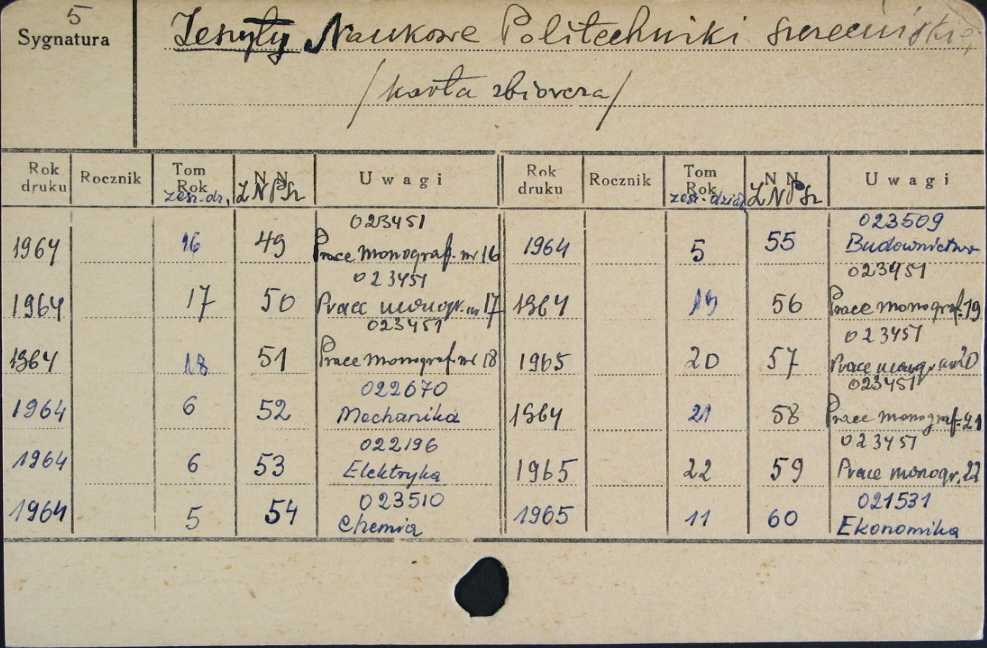 5
Sygnatura
Zeszyty Naukowe Politechniki Szczecińskiej
/karta zbiorcza/
Rok druku Rocznik Tom Rok zesz. dz. N N ZNPSz Uwagi
1964 16 49 023451 Prace monograf. nr 16
1964 17 50 023451 Prace monogr. nr 17
1964 18 51 023451 Prace monograf. nr 18
1964 6 52 022670 Mechanika
1964 6 53 022196 Elektryka
1964 5 54 023510 Chemia
Rok druku Rocznik Tom Rok zesz. dział N N ZNPSz Uwagi
1964 5 55 023509 Budownictwo
1964 19 56 023451 Prace monograf. 19
1965 20 57 023451 Prace monogr. nr 20
1964 21 58 023451 Prace monograf. 21
1965 22 59 023451 Prace monogr. 22
1965 11 60 021531 Ekonomika